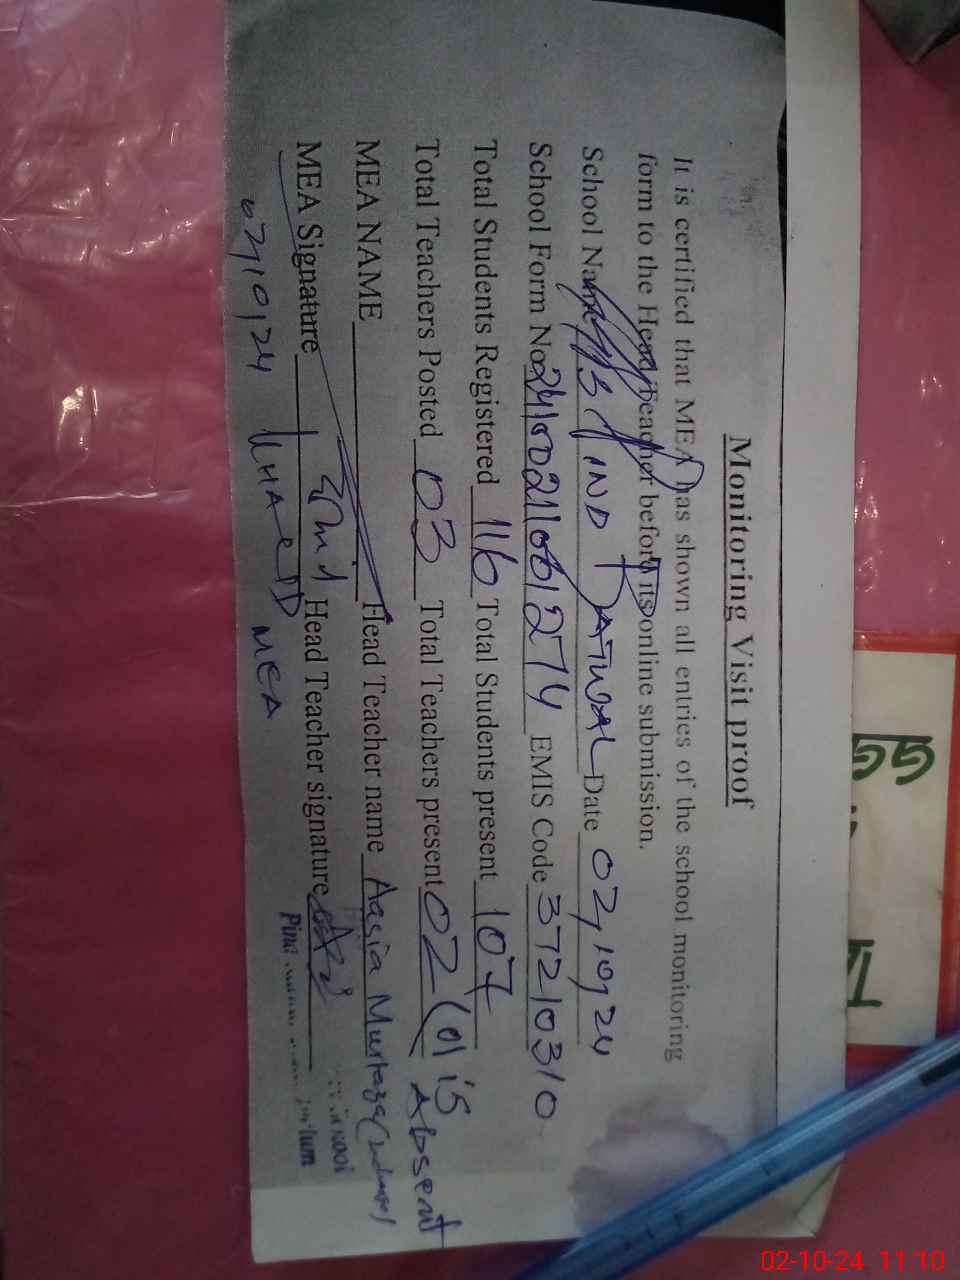 Monitoring Visit proof
It is certified that MEA has shown all entries of the school monitoring
form to the Head Teacher before its online submission.
School Name PIND PATWAL Date 02/10/24
School Form No EMIS Code 37210310
Total Students Registered 116 Total Students present 107
Total Teachers Posted 03 Total Teachers present 02 (01 is Absent
MEA NAME Head Teacher name Aasia Murtaza
MEA Signature Head Teacher signature
02/10/24 MEA
GG
02-10-24 11:10